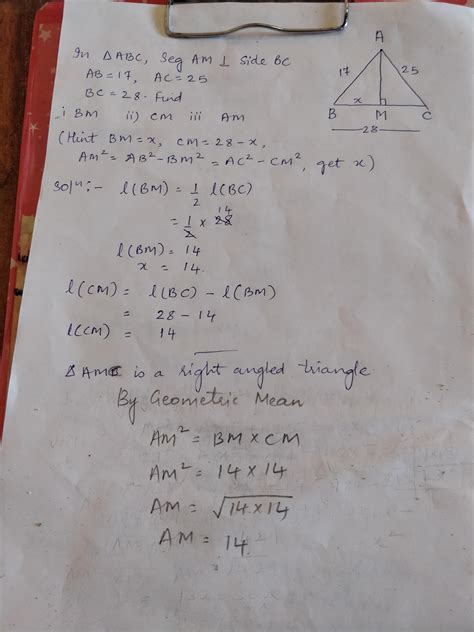 In △ABC, Seg AM ⊥ Side BC
AB=17, AC=25
BC=28. Find
i BM ii) CM iii AM
(Hint BM=x, CM=28-x,
AM²=AB²-BM²=AC²-CM², get x)
A
17
25
x
B M C
28
Solⁿ:- l(BM) = 1/2 l(BC)
= 1/2 x 28 14
l(BM) = 14
x = 14.
l(CM) = l(BC) - l(BM)
= 28 - 14
l(CM) = 14
△ AMC is a right angled triangle
By Geometric Mean
AM² = BM x CM
AM² = 14 x 14
AM = √14x14
AM = 14.